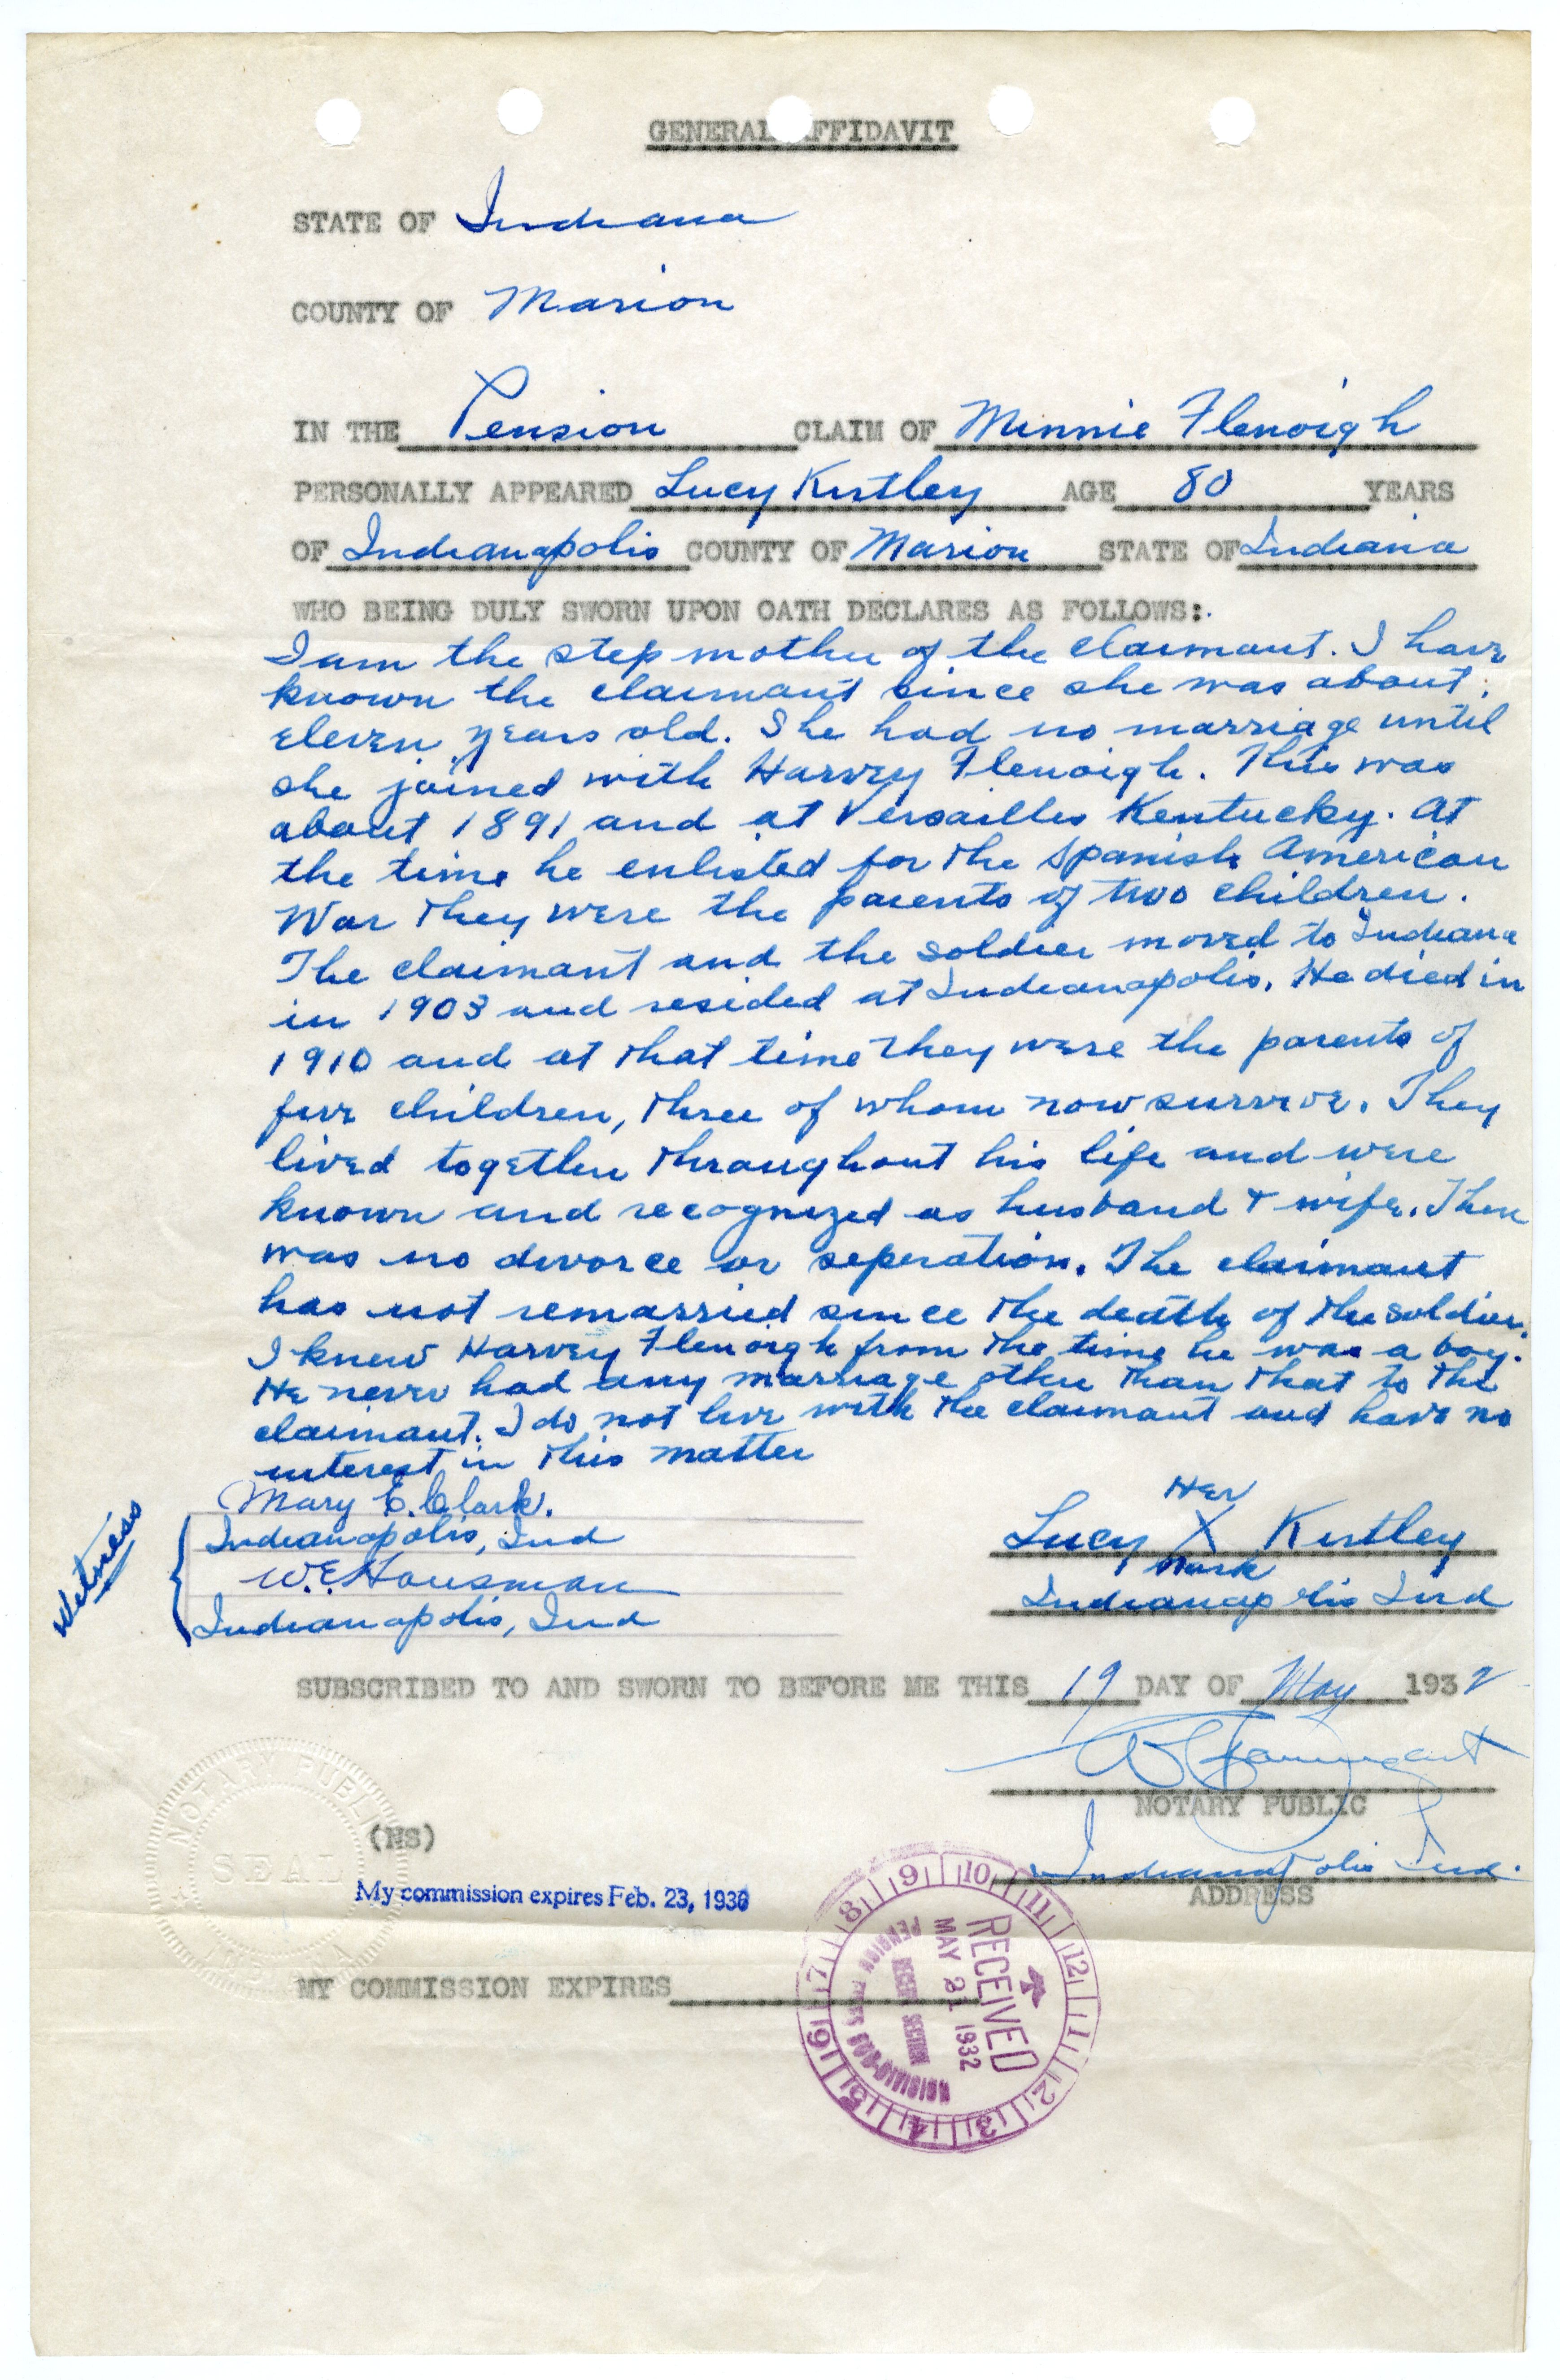 GENERAL AFFIDAVIT
STATE OF Indiana
COUNTY OF Marion
IN THE Pension CLAIM OF Minnie Flenoigh
PERSONALLY APPEARED Lucy Kirtley AGE 80 YEARS
OF Indianapolis COUNTY OF Marion STATE OF Indiana
WHO BEING DULY SWORN UPON OATH DECLARES AS FOLLOWS:
I am the step mother of the claimant. I have
known the claimant since she was about
eleven years old. She had no marriage until
she joined with Harvey Flenoigh. This was
about 1891 and at Versailles Kentucky. At
the time he enlisted for the Spanish American
War they were the parents of two children.
The claimant and the soldier moved to Indiana
in 1903 and resided at Indianapolis. He died in
1910 and at that time they were the parents of
five children, three of whom now survive. They
lived together throughout his life and were
known and recognized as husband & wife. There
was no divorce or seperation. The claimant
has not remarried since the death of the soldier.
I knew Harvey Flenoigh from the time he was a boy.
He never had any marriage other than that to the
claimant. I do not live with the claimant and have no
interest in this matter
Witness
Mary E. Clark.
Indianapolis, Ind
W.E. Hausman
Indianapolis, Ind
Her
Lucy X Kirtley
Mark
Indianapolis Ind
SUBSCRIBED TO AND SWORN TO BEFORE ME THIS 19 DAY OF May 1932
NOTARY PUBLIC
Indianapolis Ind.
ADDRESS
NOTARY PUBLIC
SEAL
INDIANA
(NS)
My commission expires Feb. 23, 1936
MY COMMISSION EXPIRES
RECEIVED
MAY 21 1932
RECORD SECTION
9 10 11 12 1 2 3 4 5 6 7 8